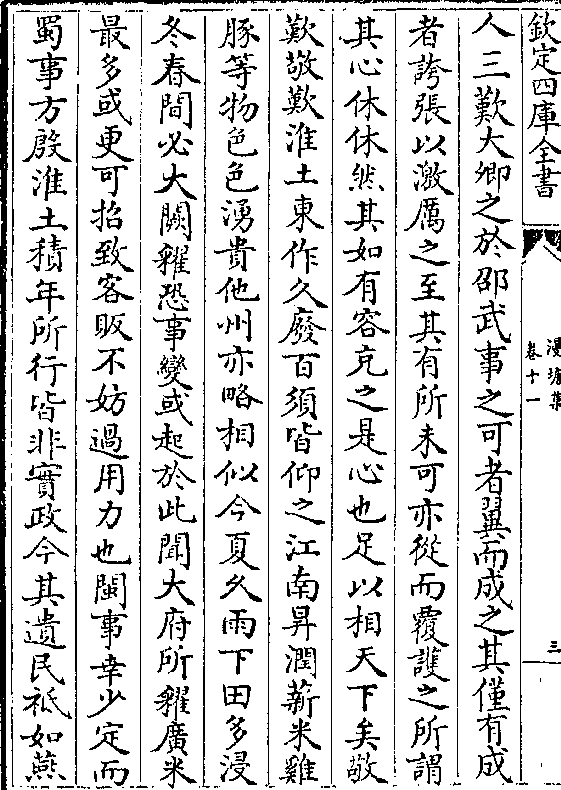 欽定四庫全書
漫塘集
卷十一
三
人三歎大卿之於邵武事之可者翼而成之其僅有成
者誇張以激厲之至其有所未可亦從而覆護之所謂
其心休休然其如有容充之是心也足以相天下矣敬
歎敬歎淮土東作久廢百須皆仰之江南昇潤薪米雞
豚等物色色湧貴他州亦略相似今夏久雨下田多浸
冬春間必大闕糴恐事變或起於此聞大府所糴廣米
最多或更可招致客販不妨過用力也閩事幸少定而
蜀事方殷淮土積年所行皆非實政今其遺民祗如燕